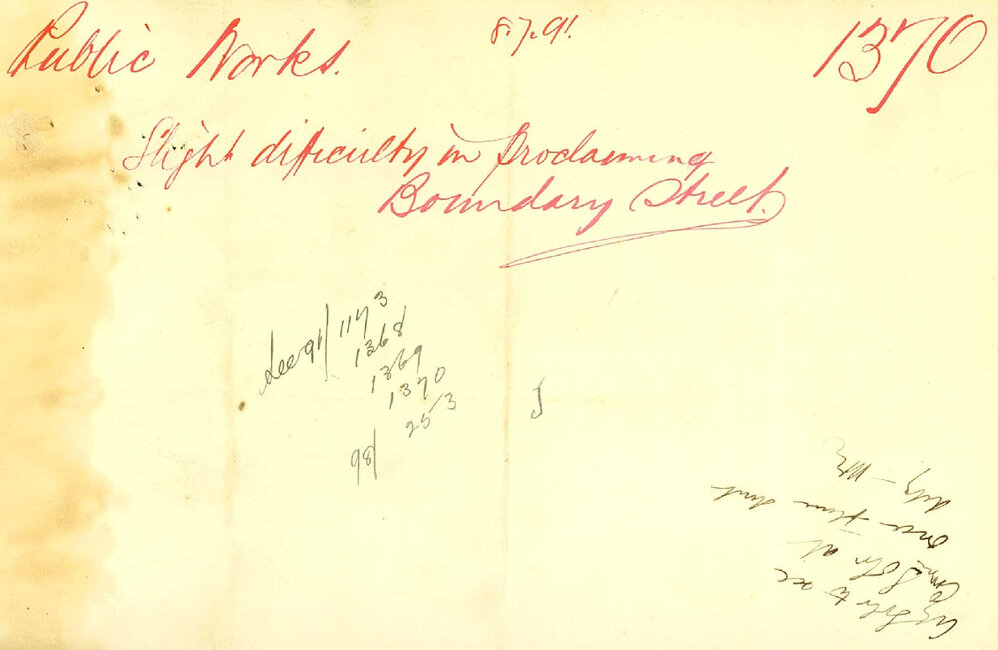 Public Works.
8.7.91.
1370
Slight difficulty in Proclaiming
Boundary Street.
See 91/ 1173
1368
1369
1370
98/ 253
to see
at
once